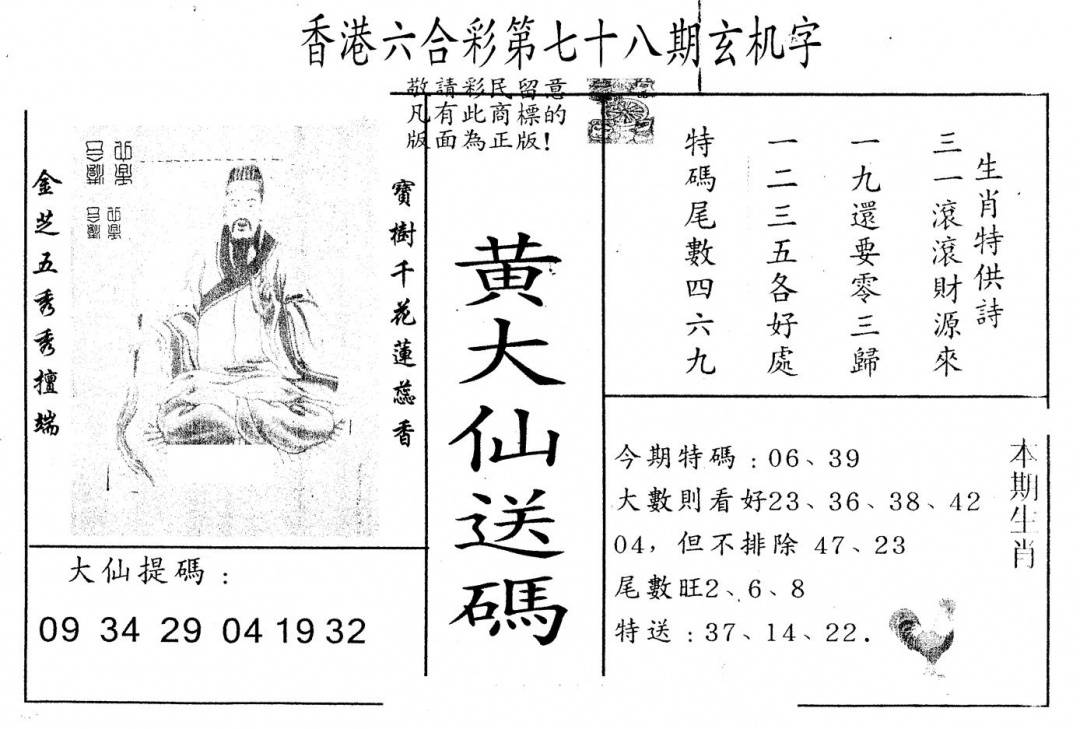 香港六合彩第七十八期玄机字
敬請彩民留意
凡有此商標的
版面為正版!
金芝五秀秀擅端
寶樹千花蓮蕊香
大仙提碼:
09 34 29 04 19 32
黄大仙送碼
生肖特供詩
三一滾滾財源來
一九還要零三歸
一二三五各好處
特碼尾數四六九
今期特碼:06、39
大數則看好23、36、38、42
04,但不排除 47、23
尾數旺2、6、8
特送:37、14、22.
本期生肖